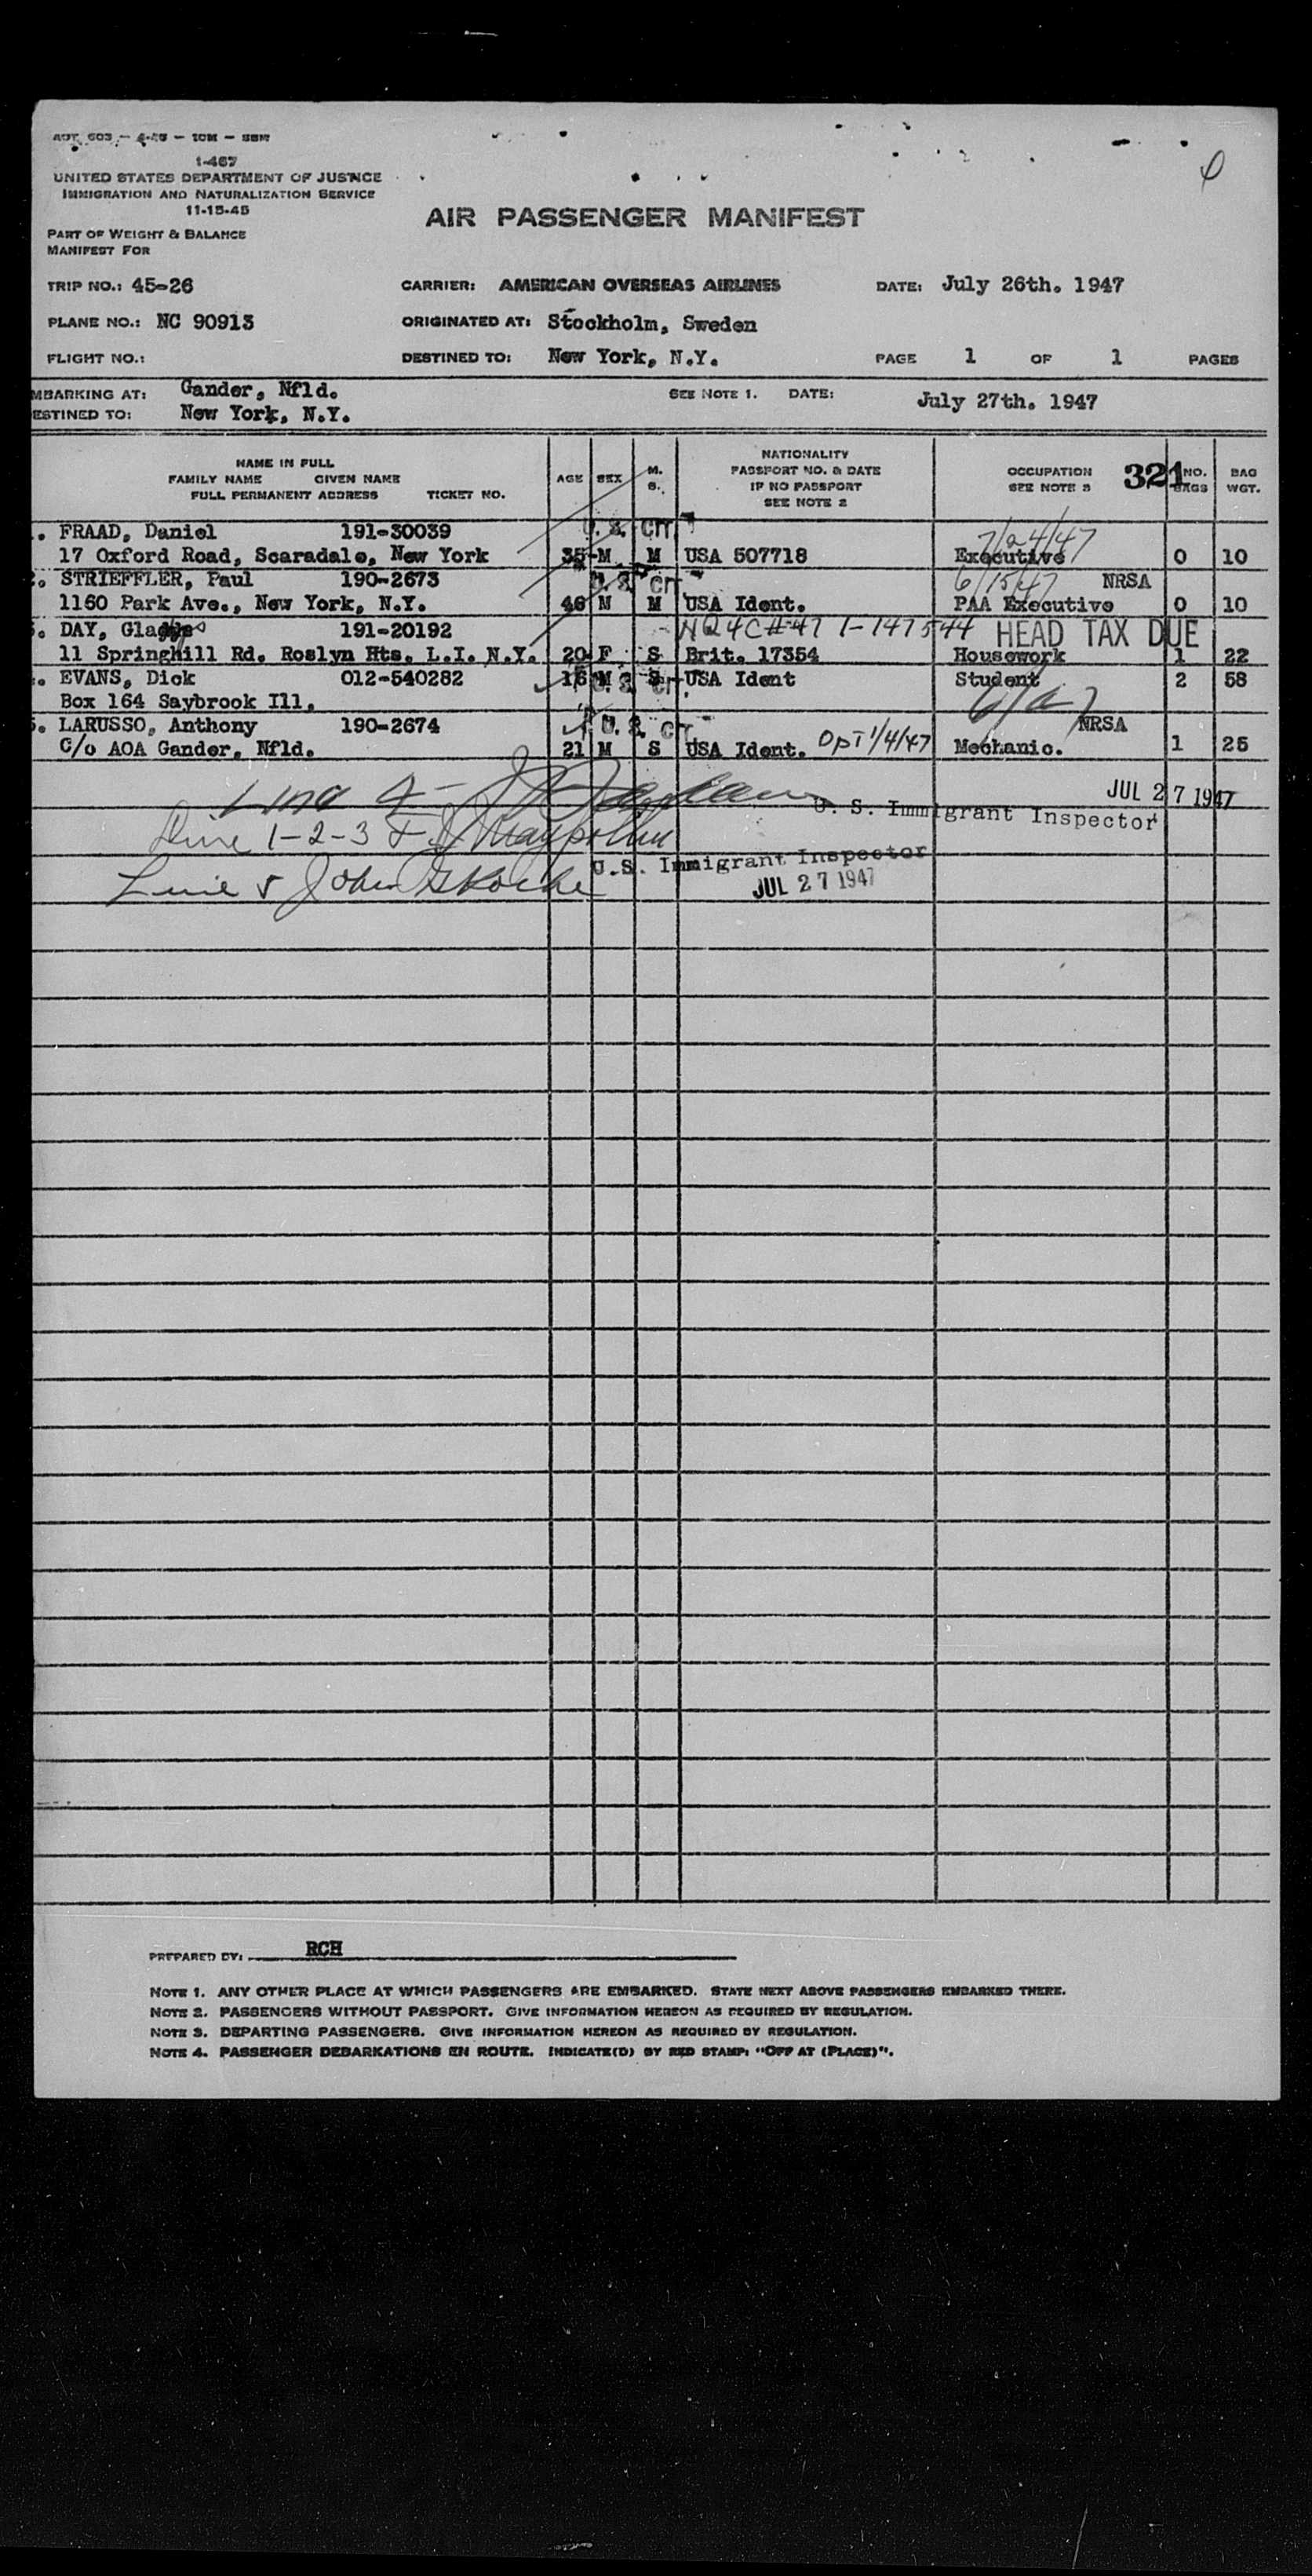 1-467
UNITED STATES DEPARTMENT OF JUSTICE
IMMIGRATION AND NATURALIZATION SERVICE
11-15-45
AIR PASSENGER MANIFEST
PART OF WEIGHT & BALANCE
MANIFEST FOR
TRIP NO.: 45-26 CARRIER: AMERICAN OVERSEAS AIRLINES DATE: July 26th. 1947
PLANE NO.: NC 90913 ORIGINATED AT: Stockholm, Sweden
FLIGHT NO.: DESTINED TO: New York, N.Y. PAGE 1 OF 1 PAGES
MBARKING AT: Gander, Nfld. SEE NOTE 1. DATE: July 27th. 1947
ESTINED TO: New York, N.Y.
NAME IN FULL
FAMILY NAME GIVEN NAME
FULL PERMANENT ADDRESS TICKET NO.
AGE SEX M. S.
NATIONALITY
PASSPORT NO. & DATE
IF NO PASSPORT
SEE NOTE 2
OCCUPATION
SEE NOTE 3
321
NO. BAGS
BAG WGT.
. FRAAD, Daniel 191-30039 U. S. Cit 7/24/47
17 Oxford Road, Scaradale, New York 35 M M USA 507718 Executive 0 10
. STRIEFFLER, Paul 190-2673 U. S. Cit 6/15/47 NRSA
1160 Park Ave., New York, N.Y. 46 M M USA Ident. PAA Executive 0 10
. DAY, Gladys 191-20192 HEAD TAX DUE
11 Springhill Rd. Roslyn Hts. L.I. N.Y. 20 F S Brit. 17354 Housework 1 22
. EVANS, Dick 012-540282 16 M S U. S. Cit USA Ident Student 2 58
Box 164 Saybrook Ill.
. LARUSSO, Anthony 190-2674 U. S. Cit NRSA
C/o AOA Gander, Nfld. 21 M S USA Ident. Opt 1/4/47 Mechanic. 1 25
JUL 27 1947
Line 4
U. S. Immigrant Inspector
Line 1-2-3
U.S. Immigrant Inspector
Line 5 John
JUL 27 1947
PREPARED BY: RCH
NOTE 1. ANY OTHER PLACE AT WHICH PASSENGERS ARE EMBARKED. STATE NEXT ABOVE PASSENGERS EMBARKED THERE.
NOTE 2. PASSENGERS WITHOUT PASSPORT. GIVE INFORMATION HEREON AS REQUIRED BY REGULATION.
NOTE 3. DEPARTING PASSENGERS. GIVE INFORMATION HEREON AS REQUIRED BY REGULATION.
NOTE 4. PASSENGER DEBARKATIONS EN ROUTE. INDICATE(D) BY RED STAMP: "OFF AT (PLACE)".